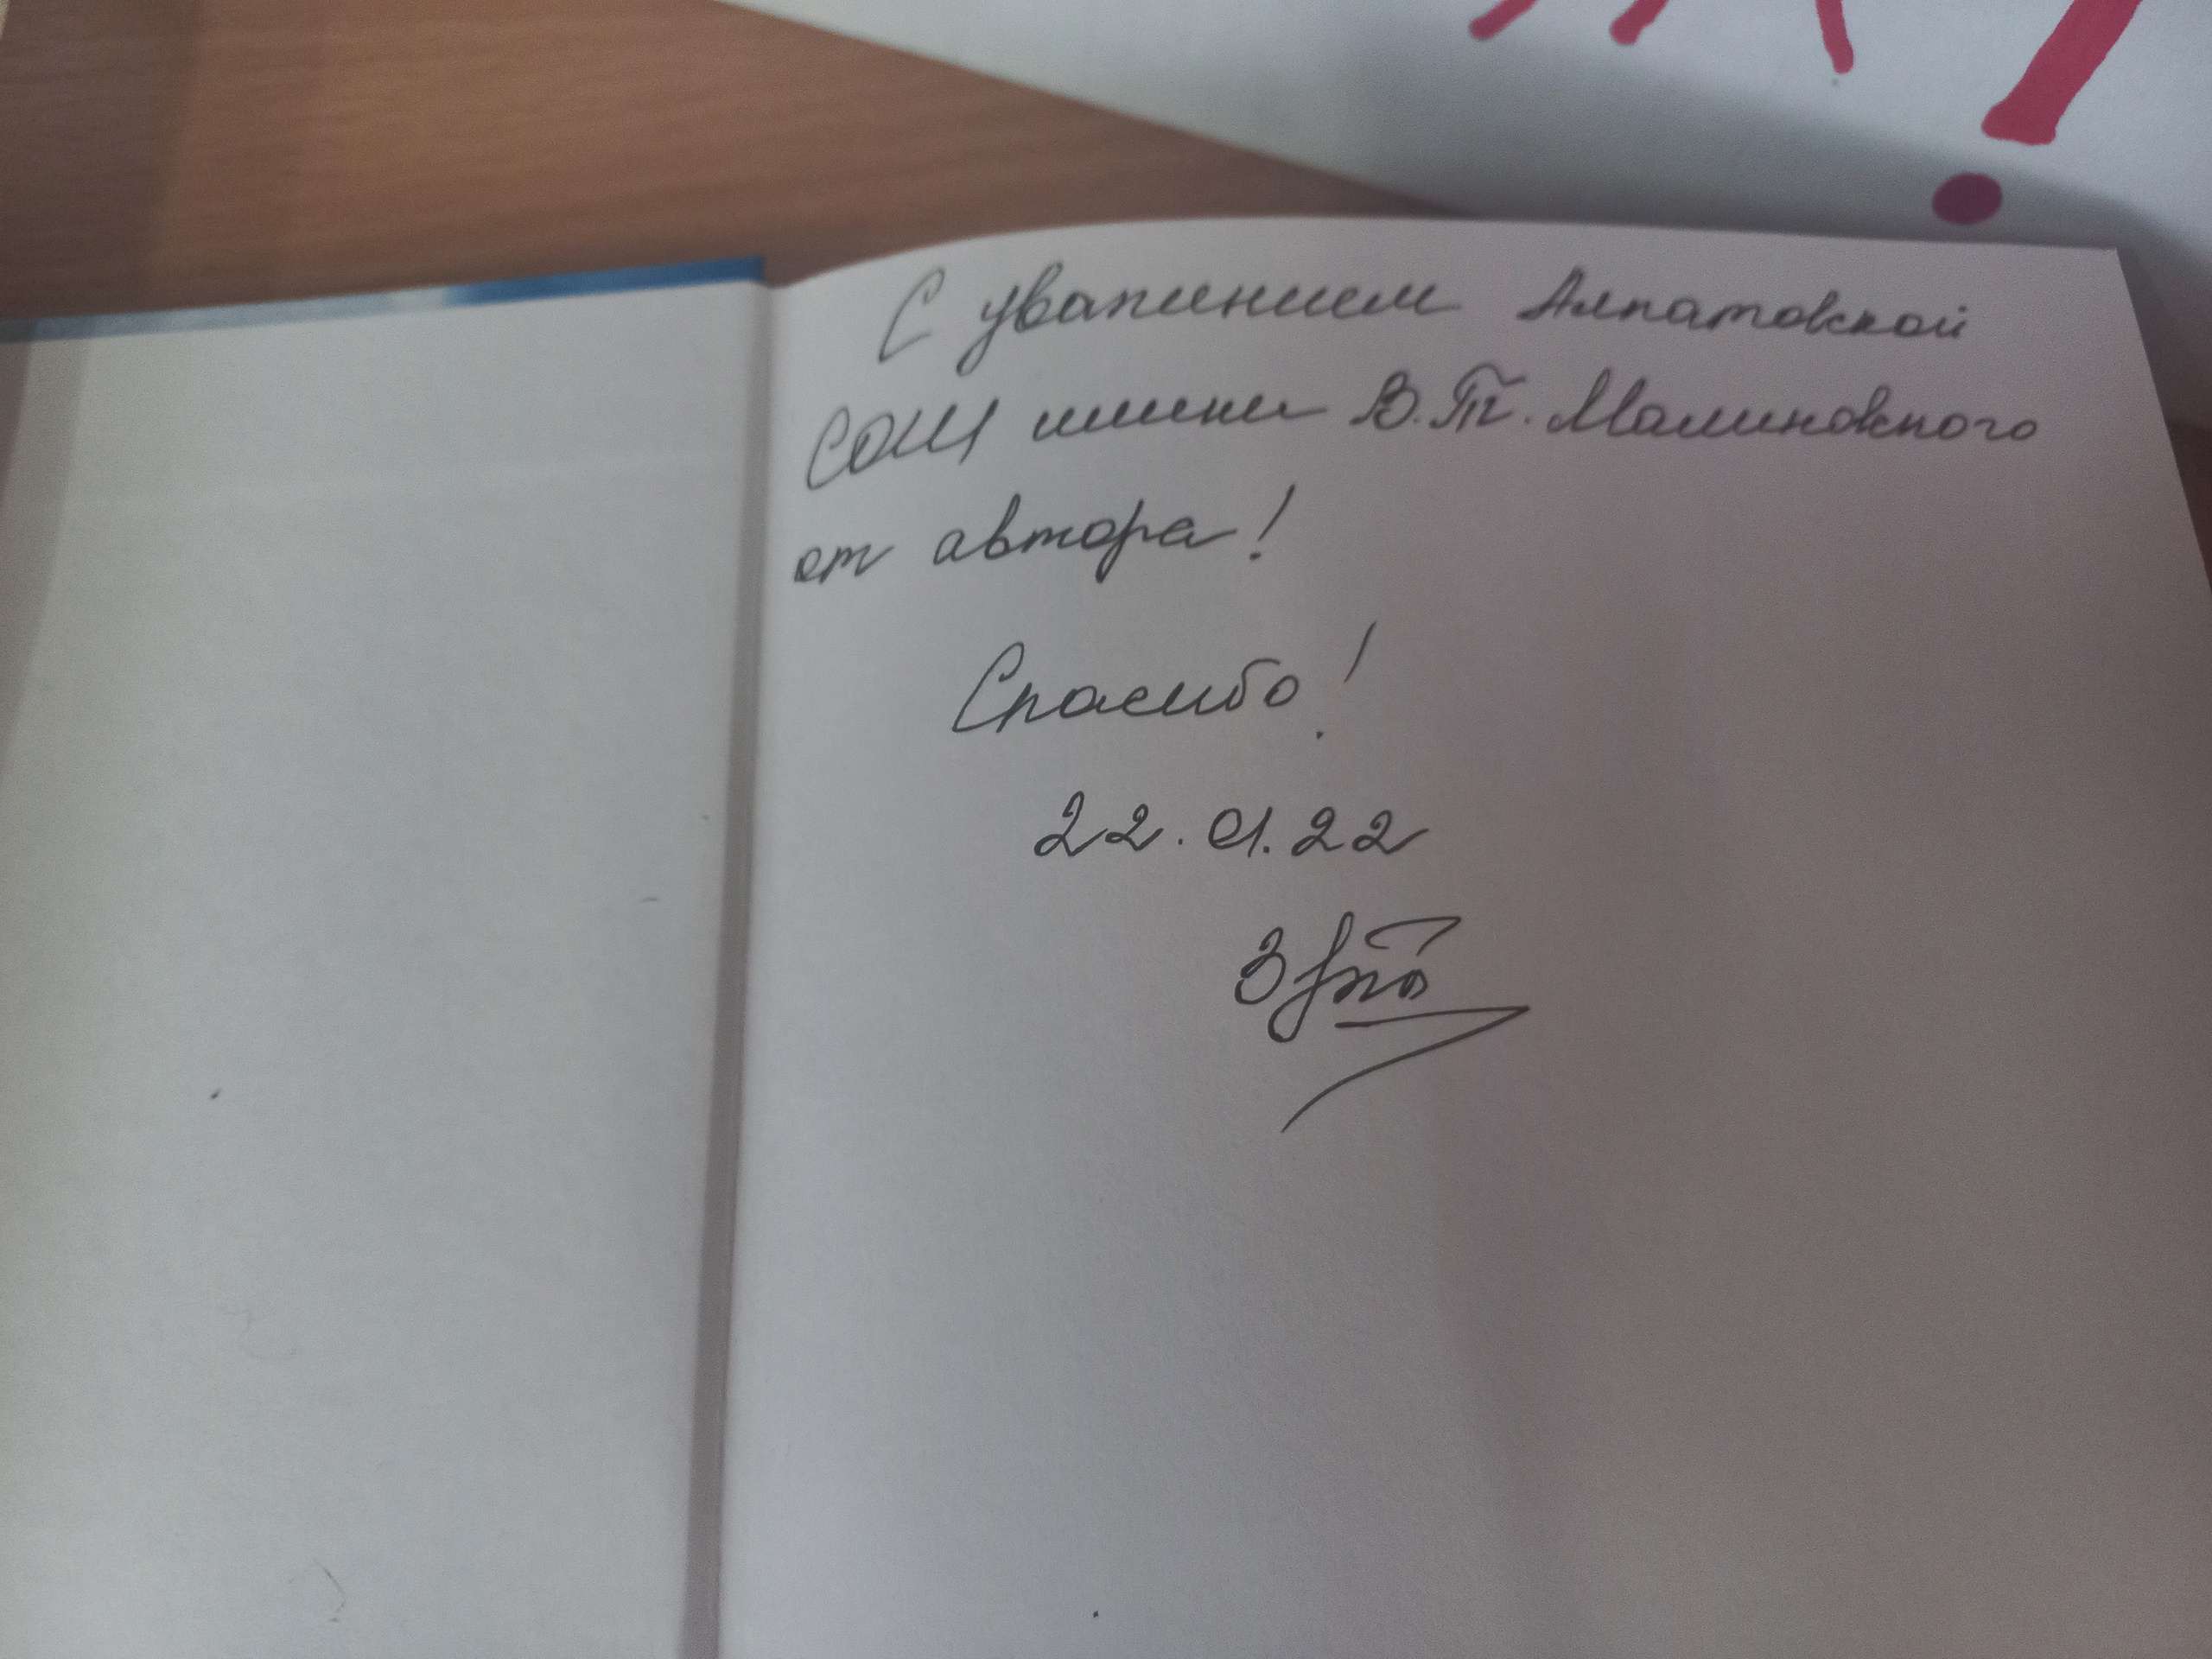 С уважением Алпатовской
СОШ имени В.Т. Малиновского
от автора!
Спасибо!
22.01.22